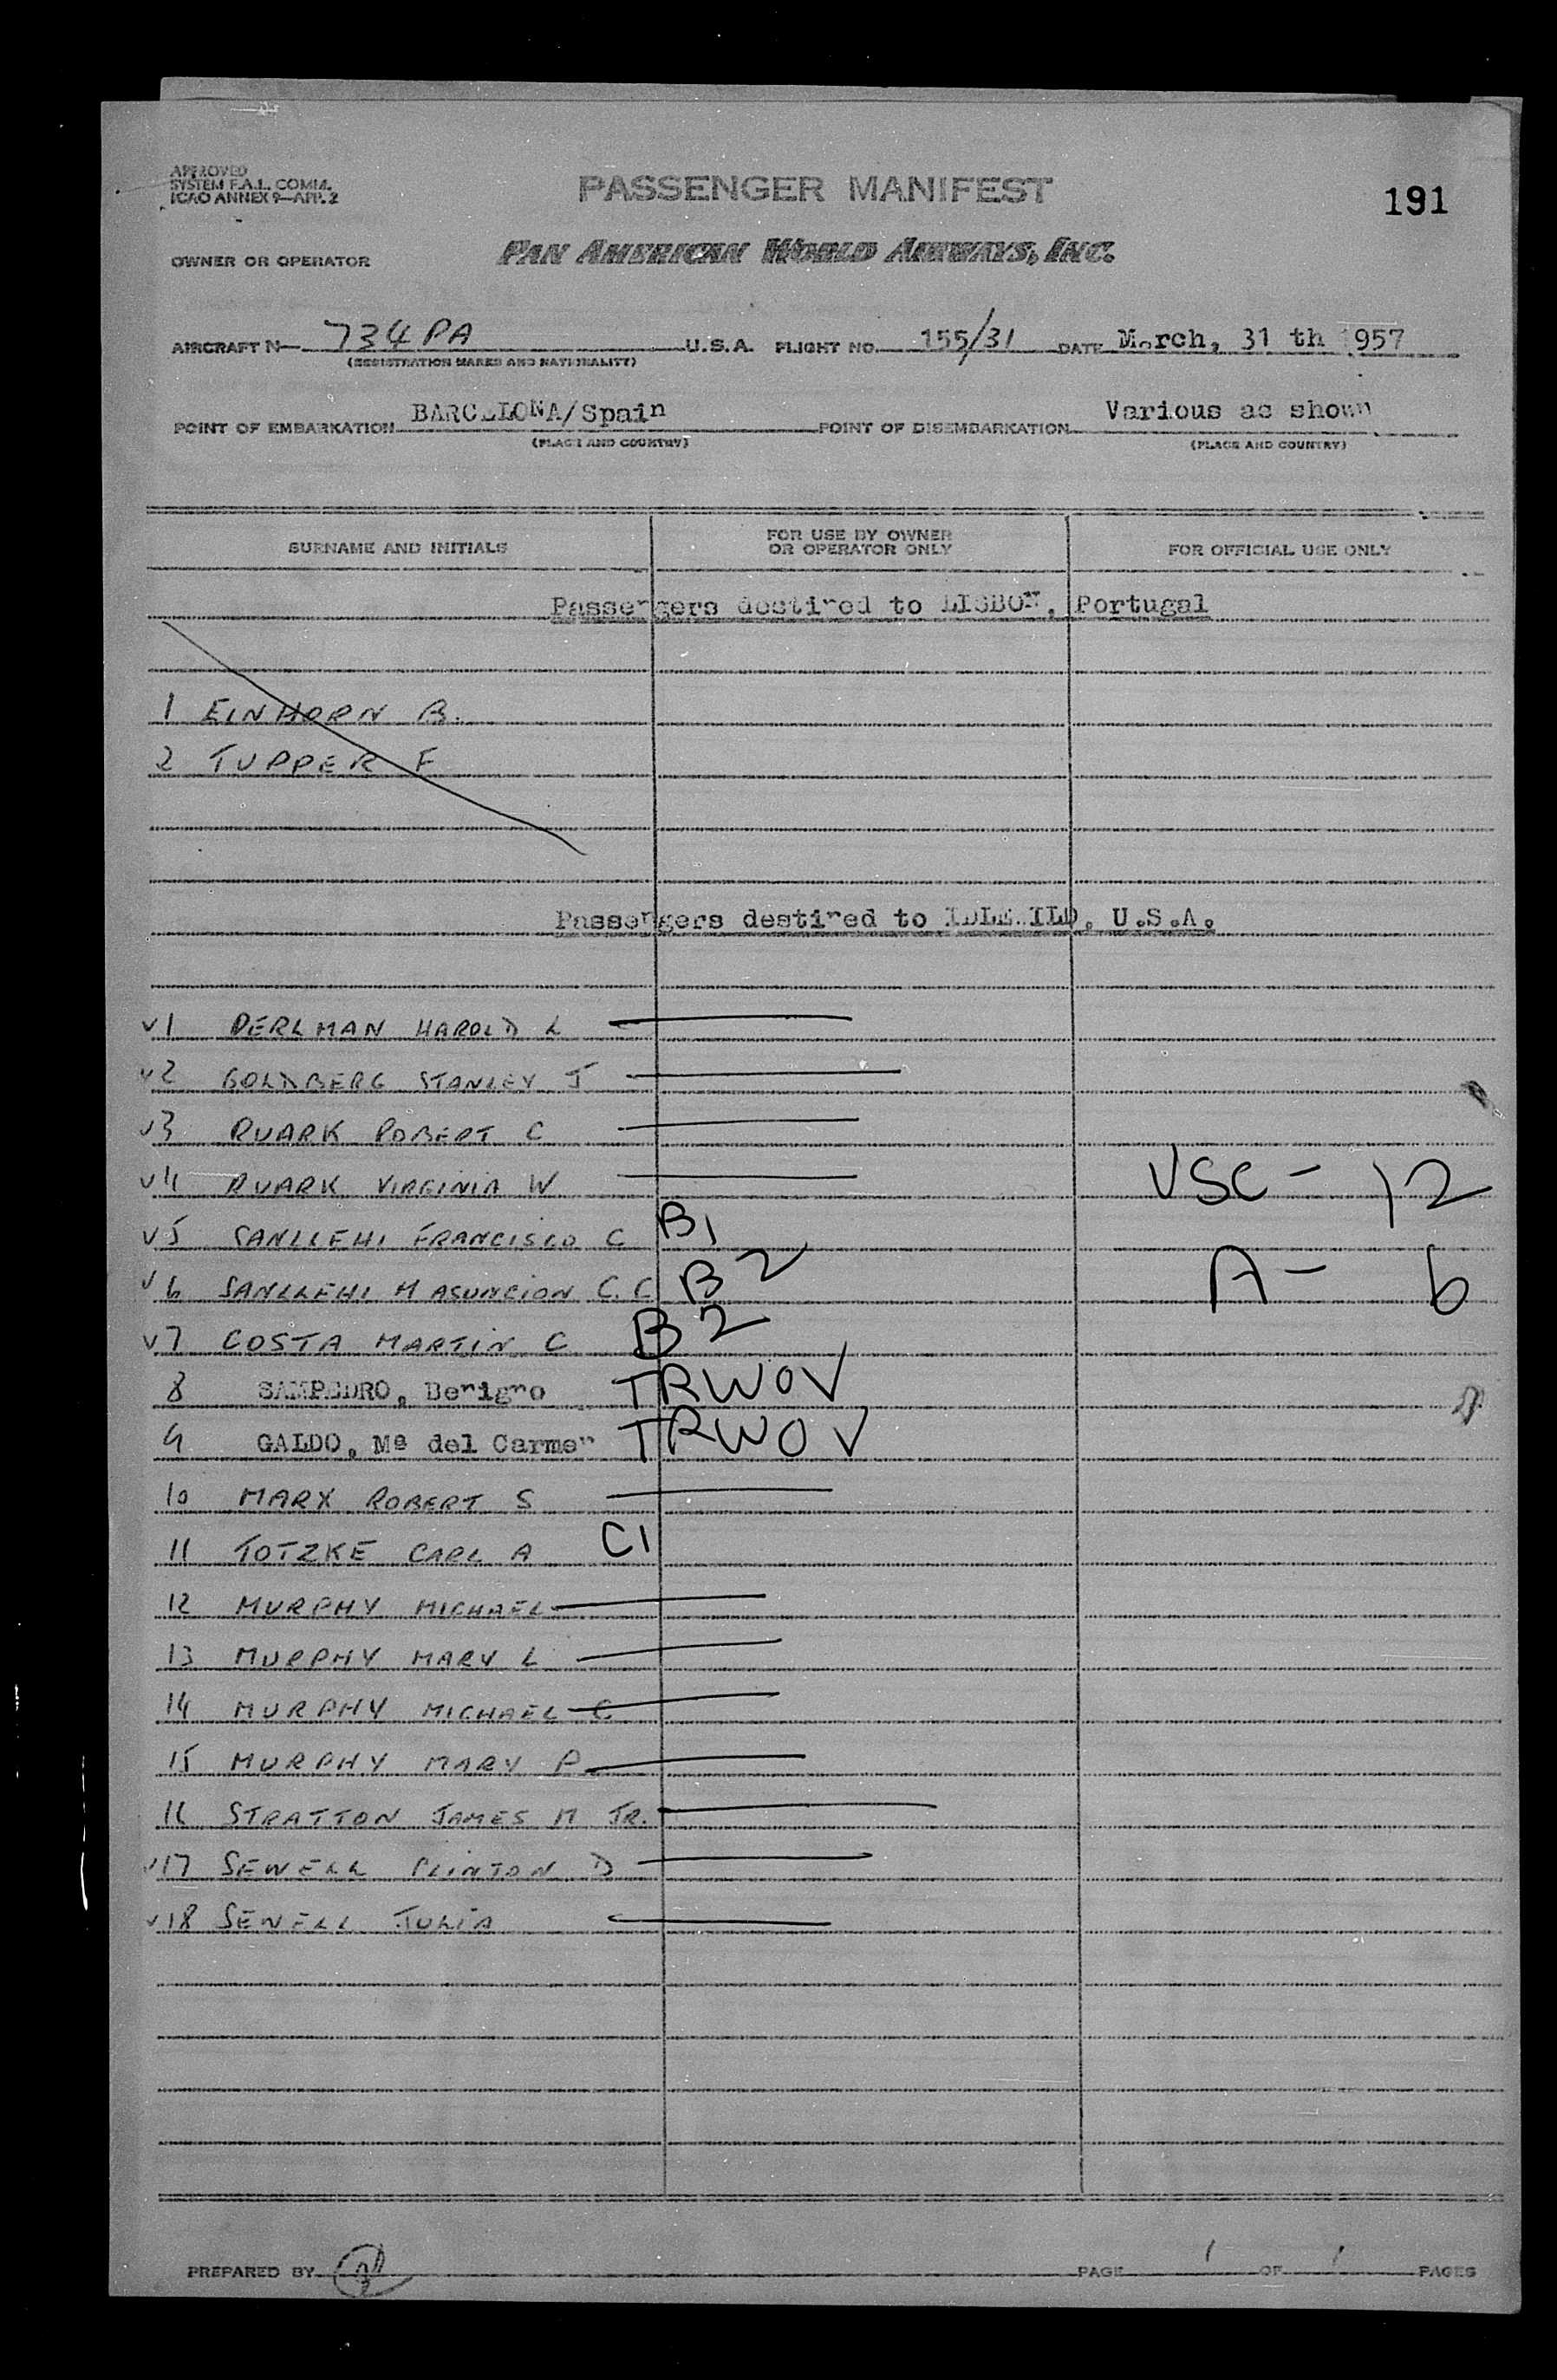 APPROVED
SYSTEM F.A.L. COMM.
ICAO ANNEX 9—APP. 2
PASSENGER MANIFEST
191
OWNER OR OPERATOR
PAN AMERICAN WORLD AIRWAYS, INC.
AIRCRAFT N— 734PA U.S.A. FLIGHT NO. 155/31 DATE March, 31 th 1957
(REGISTRATION MARKS AND NATIONALITY)
POINT OF EMBARKATION BARCELONA/Spain POINT OF DISEMBARKATION Various as shown
(PLACE AND COUNTRY) (PLACE AND COUNTRY)
SURNAME AND INITIALS
FOR USE BY OWNER
OR OPERATOR ONLY
FOR OFFICIAL USE ONLY
Passengers destired to LISBON, Portugal
1 EINHORN B.
2 TUPPER F
Passengers destired to IDLEWILD, U.S.A.
v1 PERLMAN HAROLD L
v2 GOLDBERG STANLEY J
v3 RUARK ROBERT C
v4 RUARK VIRGINIA W VSC - 12
v5 SANLLEHI FRANCISCO C B1
v6 SANLLEHI M ASUNCION C.C B2 A - 6
v7 COSTA MARTIN C B2
8 SAMPEDRO, Benigno TRWOV
9 GALDO, Mª del Carmen TRWOV
10 MARX ROBERT S
11 TOTZKE CARL A C1
12 MURPHY MICHAEL
13 MURPHY MARY L
14 MURPHY MICHAEL C
15 MURPHY MARY P
16 STRATTON JAMES M JR.
v17 SEWELL CLINTON D
v18 SEWELL JULIA
PREPARED BY PAGE 1 OF 1 PAGES